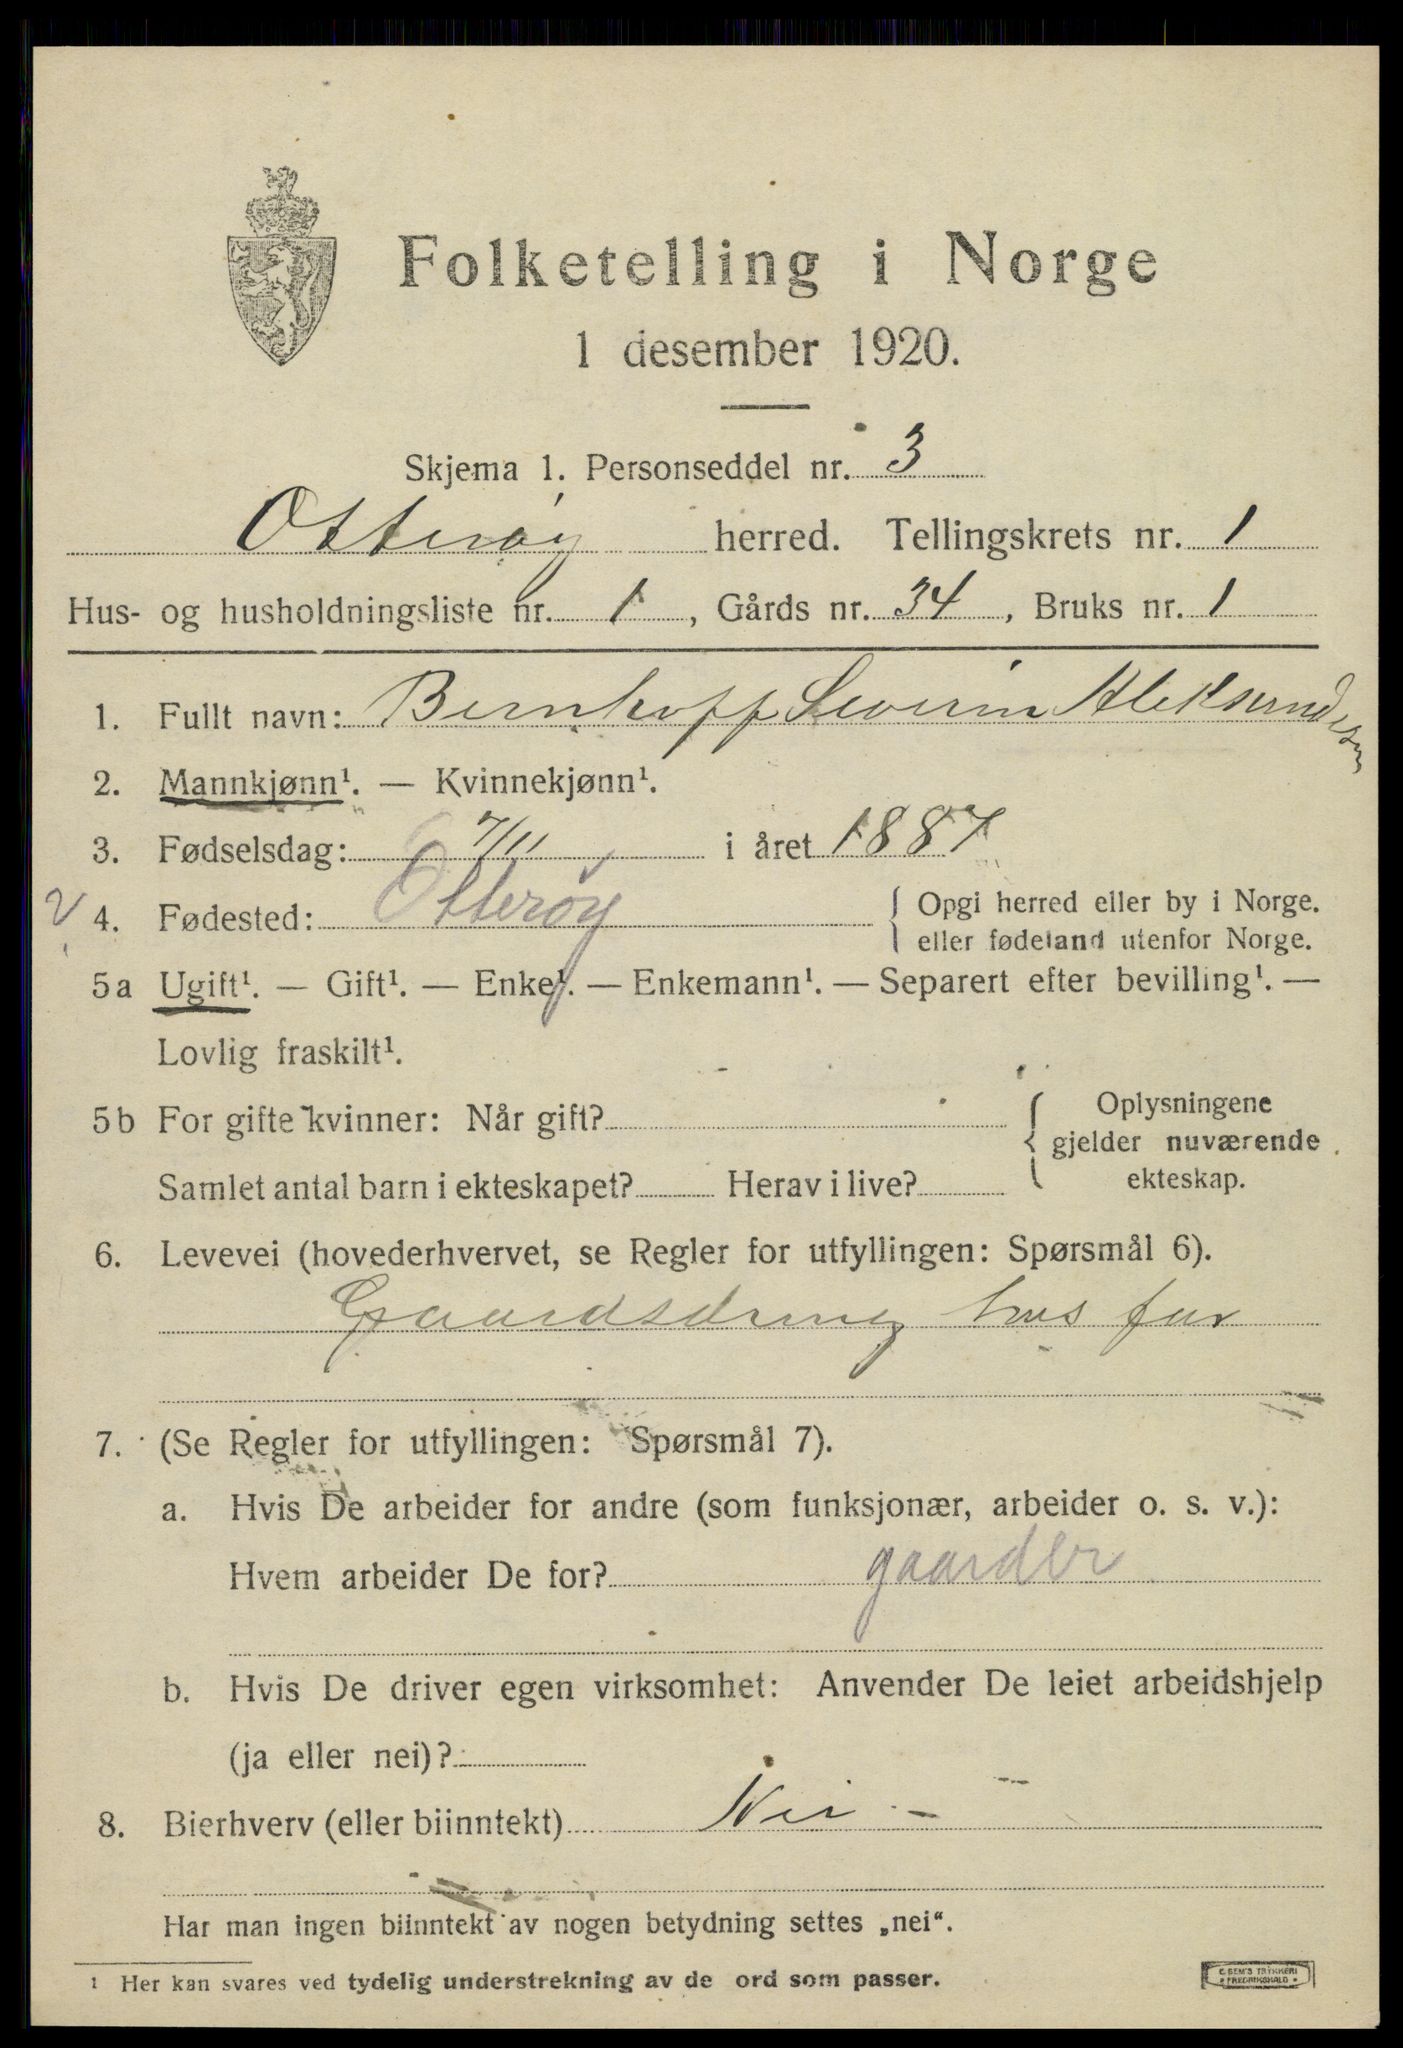 Folketelling i Norge
1 desember 1920.
Skjema 1. Personseddel nr. 3
Otterøy herred. Tellingskrets nr. 1
Hus- og husholdningsliste nr. 1, Gårds nr. 34, Bruks nr. 1
1. Fullt navn: Bernhoff Severin Aleksandersen
2. Mannkjønn¹. — Kvinnekjønn¹.
3. Fødselsdag: 7/11 i året 1887
4. Fødested: Otterøy { Opgi herred eller by i Norge.
eller fødeland utenfor Norge.
5a Ugift¹. — Gift¹. — Enke¹. — Enkemann¹. — Separert efter bevilling¹. —
Lovlig fraskilt¹.
5b For gifte kvinner: Når gift? { Oplysningene
gjelder nuværende
Samlet antal barn i ekteskapet? Herav i live? ekteskap.
6. Levevei (hovederhvervet, se Regler for utfyllingen: Spørsmål 6).
Gaardsdreng hos far
7. (Se Regler for utfyllingen: Spørsmål 7).
a. Hvis De arbeider for andre (som funksjonær, arbeider o. s. v.):
Hvem arbeider De for? gaardbr
b. Hvis De driver egen virksomhet: Anvender De leiet arbeidshjelp
(ja eller nei)?
8. Bierhverv (eller biinntekt) Nei -
Har man ingen biinntekt av nogen betydning settes „nei“.
1 Her kan svares ved tydelig understrekning av de ord som passer.
E SEM'S TRYKKERI
• FREDRIKSHALD •